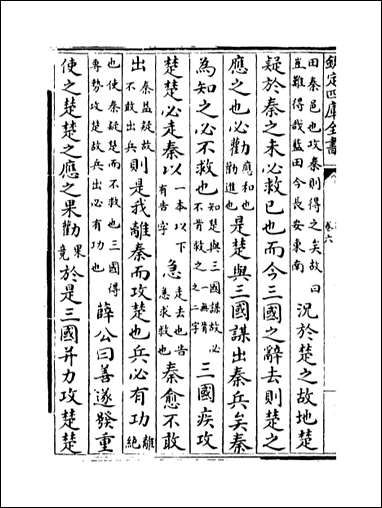 欽定四庫全書 卷六
田秦邑也攻秦則得之矣故曰
豈難得哉藍田今長安東南
況於楚之故地楚
疑於秦之未必救已也而今三國之辭去則楚之
應之也必勸 應和也
勸進也
是楚與三國謀出秦兵矣秦
為知之必不救也 知楚與三國謀故必
不肯救之一無肯之二字
三國疾攻
楚楚必走秦以 一本以下
有告字
急 走去也告
急求救也
秦愈不敢
出 秦益疑故
不敢出兵
則是我離秦而攻楚也兵必有功 離
絕
也使秦疑楚而不救也三國得
專勢攻楚故兵出必有功也
薛公曰善遂發重
使之楚楚之應之果勸 果
竟
於是三國并力攻楚楚